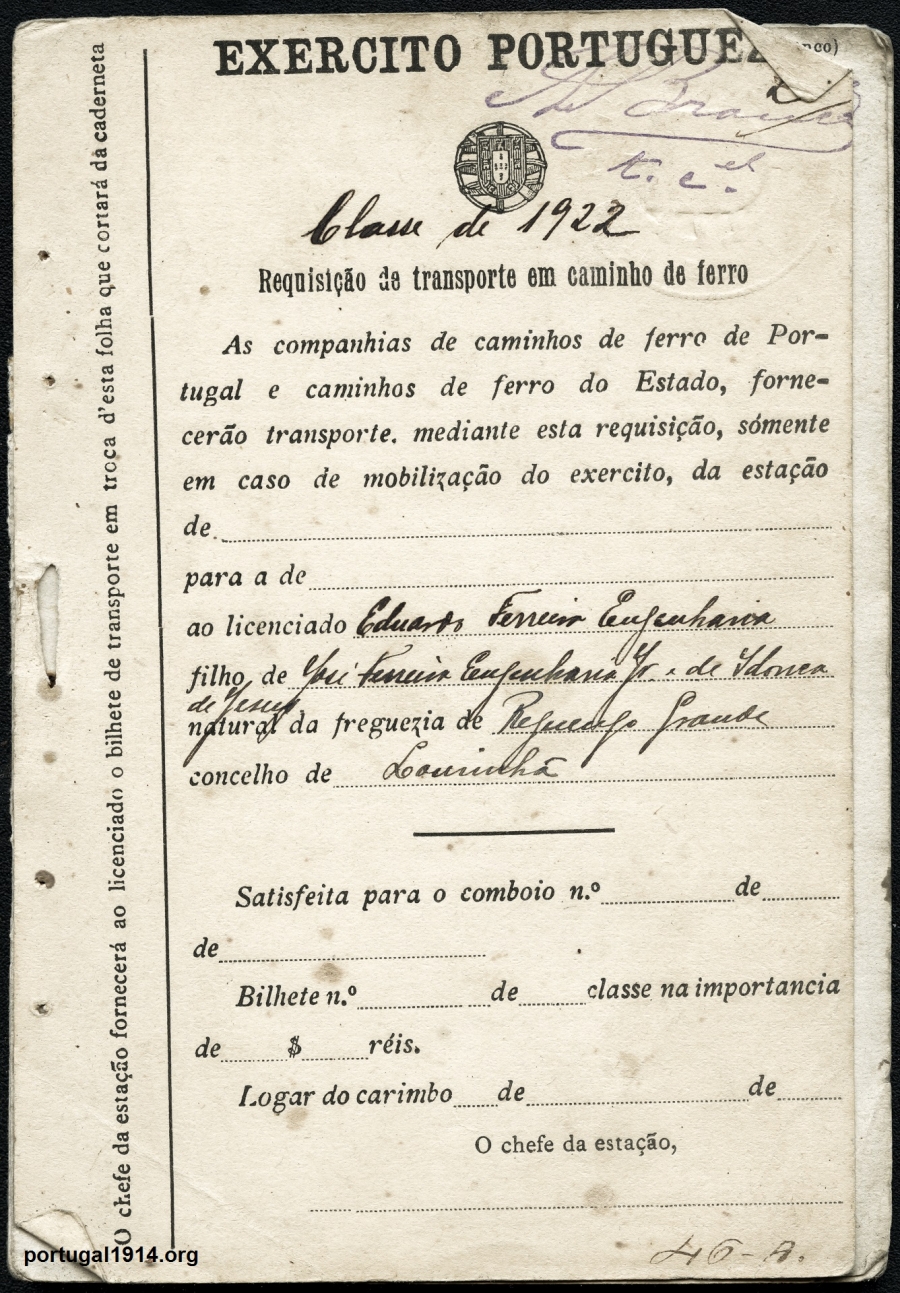 EXERCITO PORTUGUEZ
nco)
t. c.el
Classe de 1922
Requisição de transporte em caminho de ferro
As companhias de caminhos de ferro de Por-
tugal e caminhos de ferro do Estado, forne-
cerão transporte. mediante esta requisição, sómente
em caso de mobilização do exercito, da estação
de
para a de
ao licenciado Eduardo Ferreira Engenharia
filho de José Ferreira Engenharia Jr. e de Idonea
de Jesus
natural da freguezia de Reguengo Grande
concelho de Lourinhã
Satisfeita para o comboio n.º de
de
Bilhete n.º de classe na importancia
de $ réis.
Logar do carimbo de de
O chefe da estação,
46-A.
O chefe da estação fornecerá ao licenciado o bilhete de transporte em troca d'esta folha que cortará da caderneta
portugal1914.org